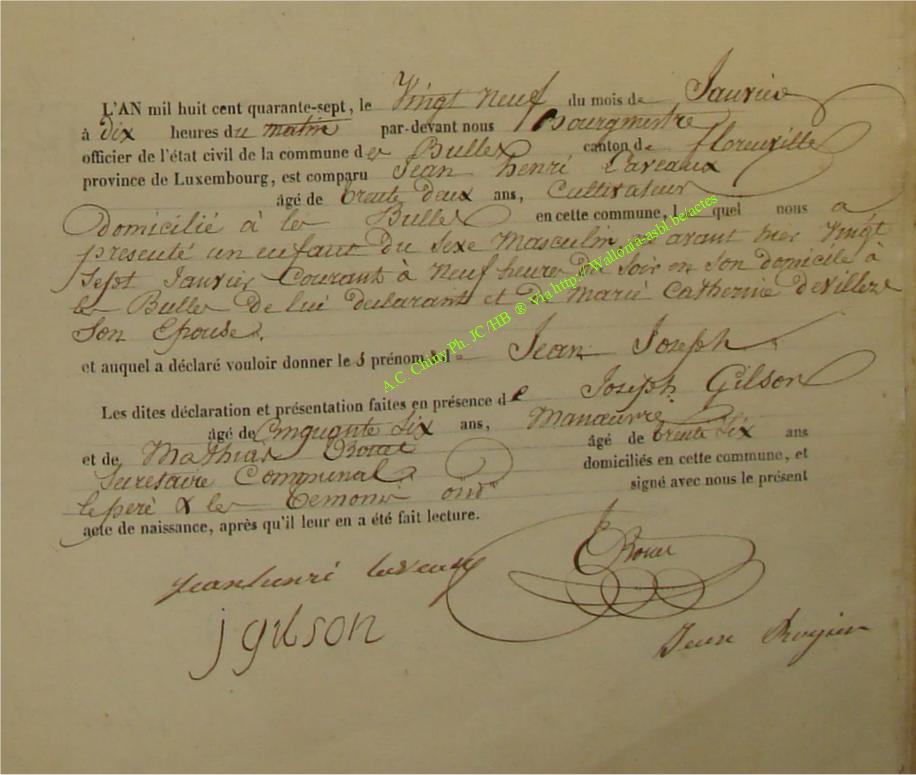 L'AN mil huit cent quarante-sept, le Vingt Neuf du mois de Janvier
à dix heures du matin par-devant nous Bourgmestre
officier de l'état civil de la commune de les Bulles canton de Florenville
province de Luxembourg, est comparu Jean henri Laveaux
âgé de trente deux ans, Cultivateur
Domicilié à les Bulles en cette commune, lequel nous a
presenté un enfant du sexe Masculin né avant hier Vingt
Sept Janvier Courant à Neuf heures du Soir en son domicile à
les Bulles de lui declarant et de Marie Catherine deVillez
Son Epouse.
et auquel a déclaré vouloir donner les prénoms Jean Joseph
Les dites déclaration et présentation faites en présence de Joseph Gilson
âgé de Cinquante Six ans, Manœuvre
et de Mathias Bouet âgé de trente Six ans
Secretaire Communal domiciliés en cette commune, et
le pere & les temoins ont signé avec nous le présent
acte de naissance, après qu'il leur en a été fait lecture.
A.C. Chiny Ph. JC/HB ® Via http://Wallonia-asbl.be/actes
Jean henri laveaux
j gilson